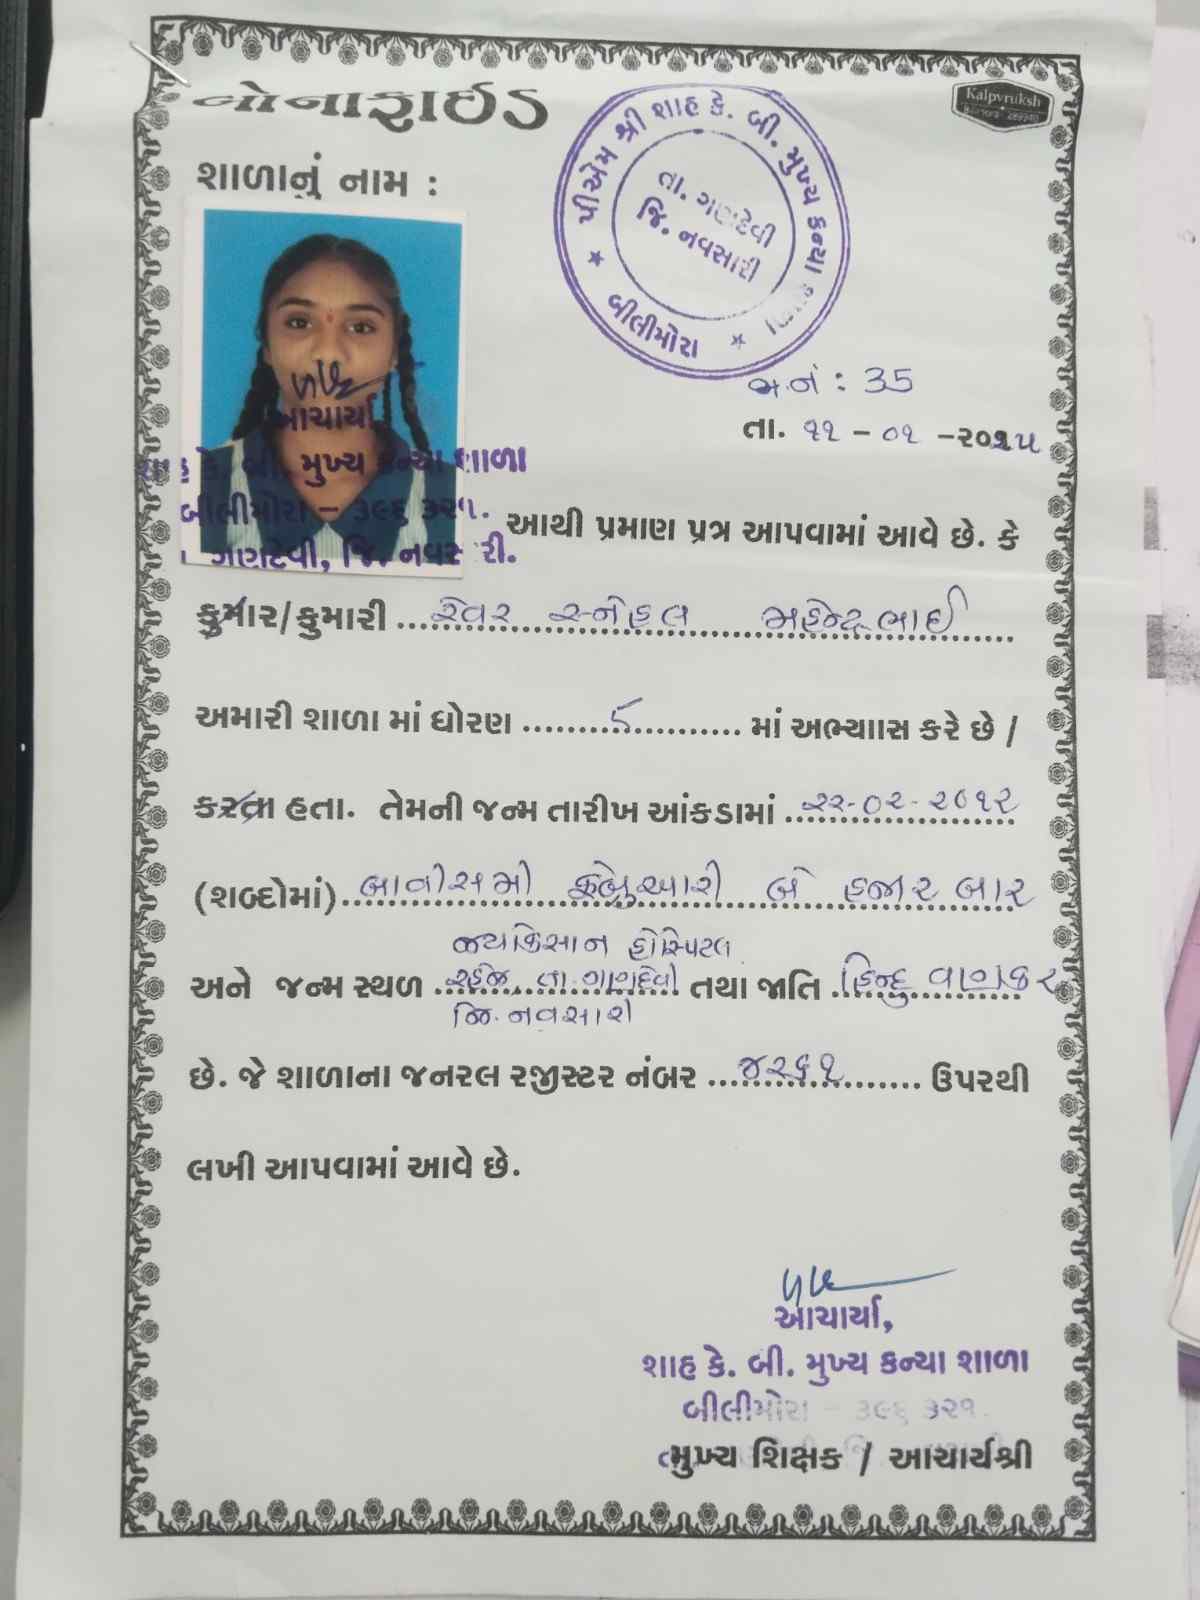 બોનાફાઈડ
Kalpvruksh
શાળાનું નામ :
પીએમ શ્રી શાહ કે. બી. મુખ્ય કન્યા શાળા
તા. ગણદેવી
જિ. નવસારી
બીલીમોરા
જા.નં : 35
તા. ૧૧ - ૦૧ - ૨૦૨૫
આચાર્યા
શાહ કે. બી. મુખ્ય કન્યા શાળા
બીલીમોરા - ૩૯૬ ૩૨૧.
ગણદેવી, જિ. નવસારી.
આથી પ્રમાણ પત્ર આપવામાં આવે છે. કે
કુમાર/કુમારી ... સ્નેહલ મહેન્દ્રભાઈ
અમારી શાળા માં ધોરણ ... માં અભ્યાાસ કરે છે /
કરતા હતા. તેમની જન્મ તારીખ આંકડામાં ૨૨-૦૨-૨૦૧૨
(શબ્દોમાં) બાવીસમી ફેબ્રુઆરી બે હજાર બાર
જયકિસાન હોસ્પિટલ
અને જન્મ સ્થળ રહેજ, તા. ગણદેવી તથા જાતિ હિન્દુ વણકર
જિ. નવસારી
છે. જે શાળાના જનરલ રજીસ્ટર નંબર ૪૨૬૧ ઉપરથી
લખી આપવામાં આવે છે.
આચાર્યા,
શાહ કે. બી. મુખ્ય કન્યા શાળા
બીલીમોરા - ૩૯૬ ૩૨૧.
મુખ્ય શિક્ષક / આચાર્યશ્રી